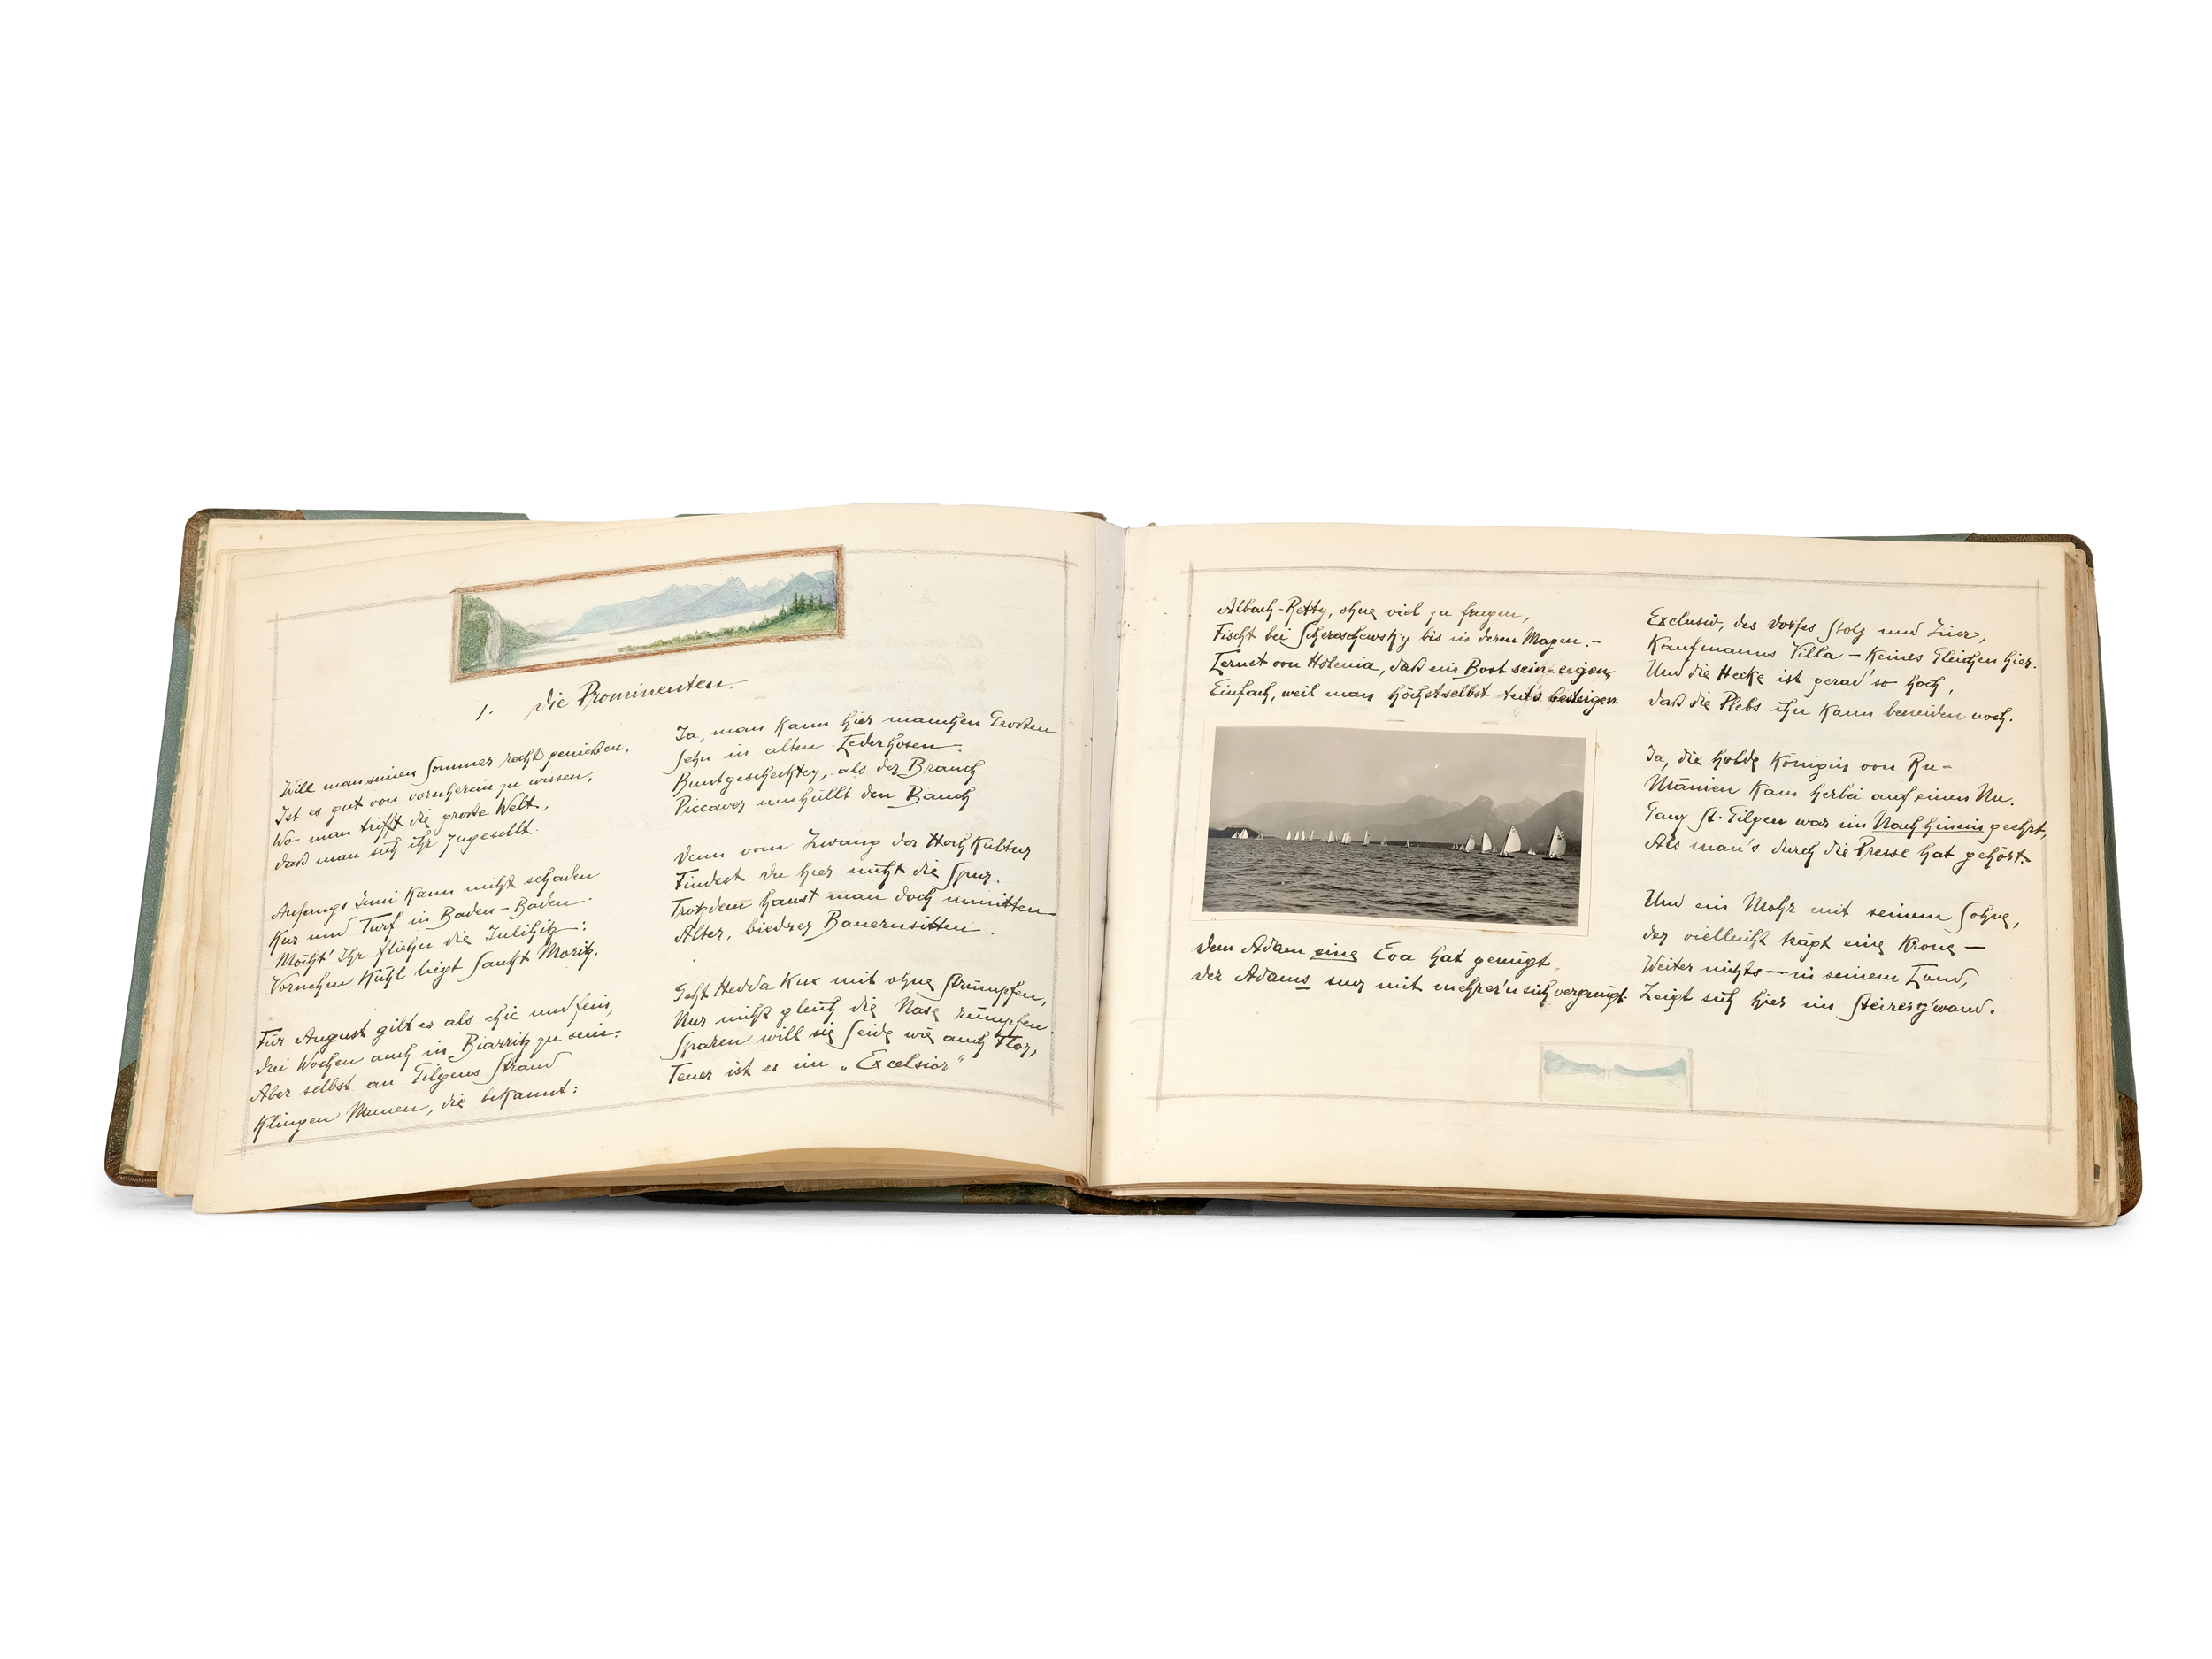 1. Die Prominenten.
Will man seinen Sommer recht genießen,
Ist es gut von vornherein zu wissen,
Wo man trifft die große Welt,
Daß man sich ihr zugesellt.
Anfangs Juni kann nicht schaden
Kur und Turf in Baden-Baden.
Möcht' Ihr flieh'n die Julihitz:
Vornehm kühl liegt Sankt Moritz.
Für August gilt es als chic und fein,
Drei Wochen auch in Biarritz zu sein.
Aber selbst an Gilgens Strand
Klingen Namen, die bekannt:
Ja, man kann hier manchen Großen
Sehn in alten Lederhosen.
Buntgescheckter, als der Brauch
Piccaver umhüllt den Bauch
Denn vom Zwang der Hochkultur
Findest du hier nicht die Spur.
Trotzdem haust man doch inmitten
Alter, biedrer Bauernsitten.
Geht Hedda Kux mit ohne Strümpfen,
Nur nicht gleich die Nase rümpfen.
Sparen will sie Seide wie auch Flor,
Teuer ist es im „Excelsior"
Albach-Retty, ohne viel zu fragen,
Fischt bei Schereschewsky bis in deren Magen. –
Lernet von Holenia, daß ein Boot sein eigen,
Einfach, weil man höchstselbst tut's besteigen.
Dem Adam eine Eva hat genügt,
Der Adams nur mit mehrer'n sich vergnügt.
Exclusiv, des Dorfes Stolz und Zier,
Kaufmanns Villa – keines Gleichen hier.
Und die Hecke ist gerad' so hoch,
Daß die Plebs ihn kann beneiden noch.
Ja, die holde Königin von Ru-
Mänien kam herbei auf einen Nu.
Ganz St. Gilgen war im Nachhinein geehrt,
Als man's durch die Presse hat gehört.
Und ein Mohr mit seinem Sohne,
Der vielleicht trägt eine Krone –
Weiter nichts – in seinem Land,
Zeigt sich hier im Steirerg'wand.